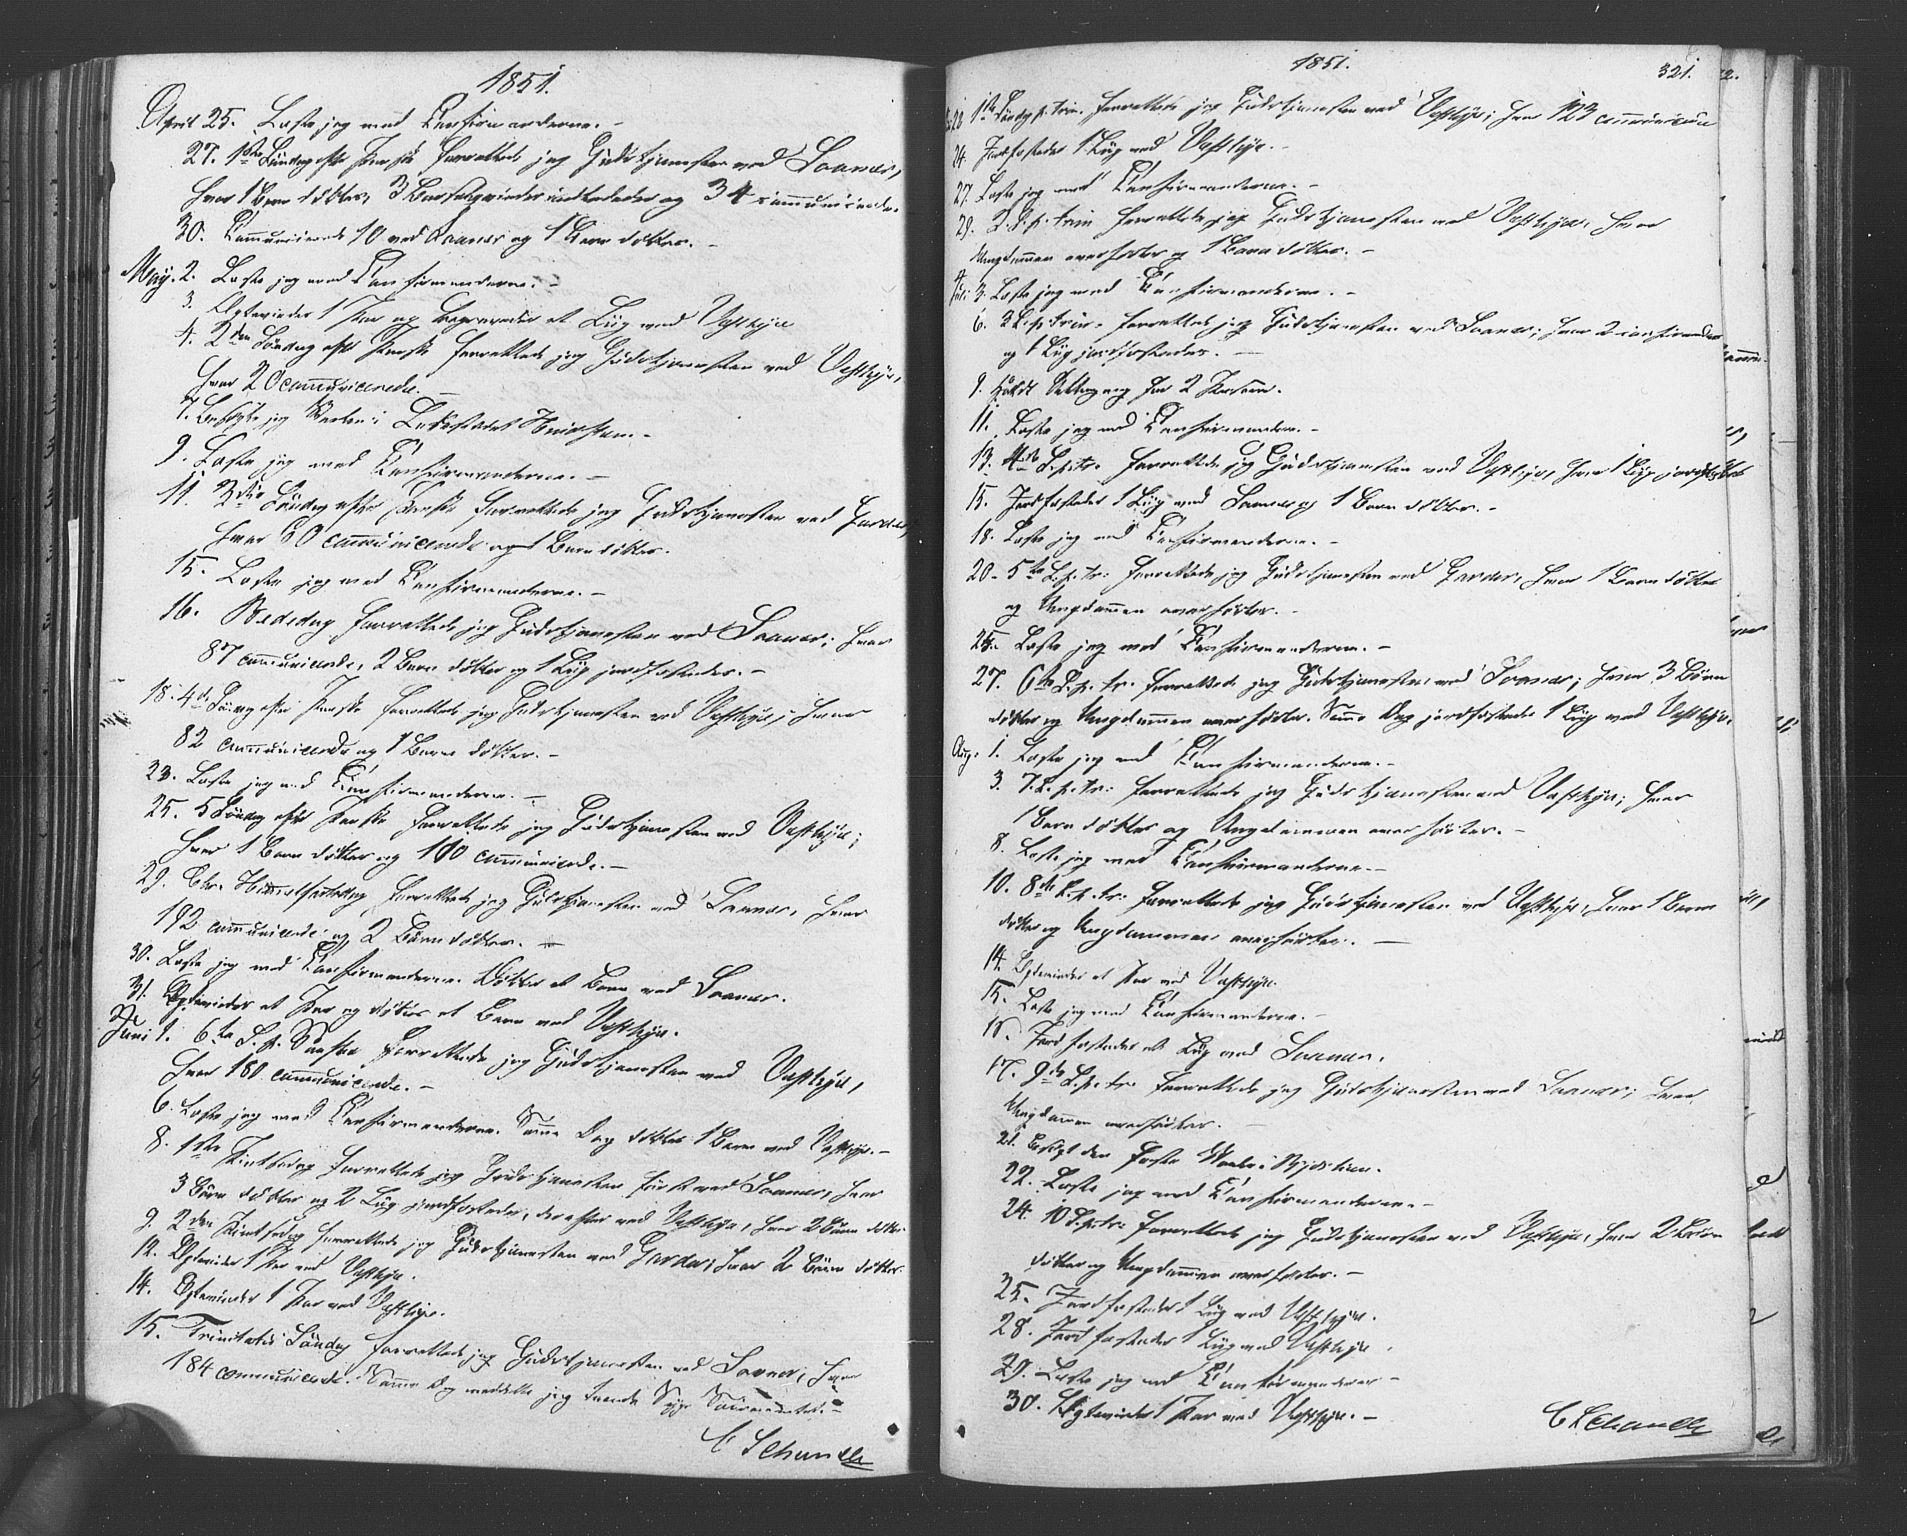 1851.
April 25. Læste jeg med Confirmanderne. -
27. 1ste Søndag efter Paaske forrettede jeg Gudstjenesten ved Sannes,
hvor 1 Barn døbtes, 3 Barselqvinder indlededes og 34 communicerede.
30. Communicerede 10 ved Sannes og 1 Barn døbtes. -
May. 2. Læste jeg med Confirmanderne. -
3. Ægteviedes 1 Par og begravedes et Liig ved Vestbye
4. 2den Søndag efter Paaske forrettede jeg Gudstjenesten ved Vestbye,
hvor 20 communicerede. -
7. Besøgte jeg Skolen i
9. Læste jeg med Confirmanderne. -
11. 3die Søndag efter Paaske forrettede jeg Gudstjenesten ved Garder,
hvor 60 communicerede og 1 Barn døbtes.
15. Læste jeg med Confirmanderne. -
16. Bededag forrettede jeg Gudstjenesten ved Sannes; hvor
87 communicerede, 2 Børn døbtes og 1 Liig jordfæstedes. -
18. 4de Søndag efter Paaske forrettede jeg Gudstjenesten ved Vestbye; hvor
82 communicerede og 1 Barn døbtes. -
23. Læste jeg med Confirmanderne. -
25. 5 Søndag efter Paaske forrettede jeg Gudstjenesten ved Vestbye;
hvor 1 Barn døbtes og 100 communicerede. -
29. Chr. Himmelfartsdag forrettede jeg Gudstjenesten ved Sannes, hvor
192 communicerede og 2 Børn døbtes. -
30. Læste jeg med Confirmanderne. Døbtes et Barn ved Sannes.
31. Ægteviedes et Par og døbtes et Barn ved Vestbye.
Juni 1. 6te S. p. Paaske forrettede jeg Gudstjenesten ved Vestbye,
hvor 180 communicerede. -
6. Læste jeg med Confirmanderne. Samme Dag døbtes 1 Barn ved Vestbye. -
8. 1ste Pintsedag forrettede jeg Gudstjenesten først ved Sannes, hvor
3 Børn døbtes og 2 Liig jordfæstedes, derefter ved Vestbye, hvor 2 Børn døbtes.
9. 2den Pintsedag forrettede jeg Gudstjenesten ved Garder; hvor 2 Børn døbtes.
12. Ægteviedes 1 Par ved Vestbye.
14. Ægteviedes 1 Par ved Vestbye.
15. Trinitatis Søndag forrettede jeg Gudstjenesten ved Sannes, hvor
184 communicerede. Samme Dag meddelte jeg tvende Syge Sacramentet. -
C Schande
1851.
321.
22 1ste Søndag p. trin. forrettede jeg Gudstjenesten ved Vestbye; hvor 123 communicerede
24. Jordfæstedes 1 Liig ved Vestbye. -
27. Læste jeg med Confirmanderne. -
29. 2. S. p. trin forrettede jeg Gudstjenesten ved Vestbye, hvor
Ungdommen overhørtes og 1 Barn døbtes. -
Juli 3. Læste jeg med Confirmanderne. -
6. 3 S. p. trin. forrettede jeg Gudstjenesten ved Sannes; hvor 2 confirmeredes
og 1 Liig jordfæstedes. -
9. Holdt for 2
11. Læste jeg med Confirmanderne. -
13. 4de S. p. tr. forrettede jeg Gudstjenesten ved Vestbye, hvor 1 Liig jordfæstedes
15. Jordfæstedes 1 Liig ved Sannes og 1 Barn døbtes. -
18. Læste jeg med Confirmanderne. -
20. 5te S. p. tr. forrettede jeg Gudstjenesten ved Garder, hvor 1 Barn døbtes
og Ungdommen overhørtes. -
25. Læste jeg med Confirmanderne. -
27. 6te S. p. tr. forrettede jeg Gudstjenesten ved Sannes; hvor 3 Børn
døbtes og Ungdommen overhørtes. Samme Dag jordfæstedes 1 Liig ved Vestbye.
Aug. 1. Læste jeg med Confirmanderne. -
3. 7. S. p. tr. forrettede jeg Gudstjenesten ved Vestbye; hvor
1 Barn døbtes og Ungdommen overhørtes. -
8. Læste jeg med Confirmanderne. -
10. 8de S. p. tr. forrettede jeg Gudstjenesten ved Vestbye, hvor 1 Barn
døbtes og Ungdommen overhørtes. -
14. Ægteviedes et Par ved Vestbye.
15. Læste jeg med Confirmanderne. -
Jordfæstedes et Liig ved Sannes.
17. 9de S. p. tr. forrettede jeg Gudstjenesten ved Sannes; hvor
Ungdommen overhørtes. -
21. Besøgt den faste Skole i
22. Læste jeg med Confirmanderne. -
24. 10 S. p. tr. forrettede jeg Gudstjenesten ved Vestbye, hvor 2 Børn
døbtes og Ungdommen overhørtes. -
25. Jordfæstedes 1 Liig ved Vestbye.
28. Jordfæstedes 1 Liig ved Vestbye.
29. Læste jeg med Confirmanderne -
30. Ægteviedes 1 Par ved Vestbye. -
C Schande